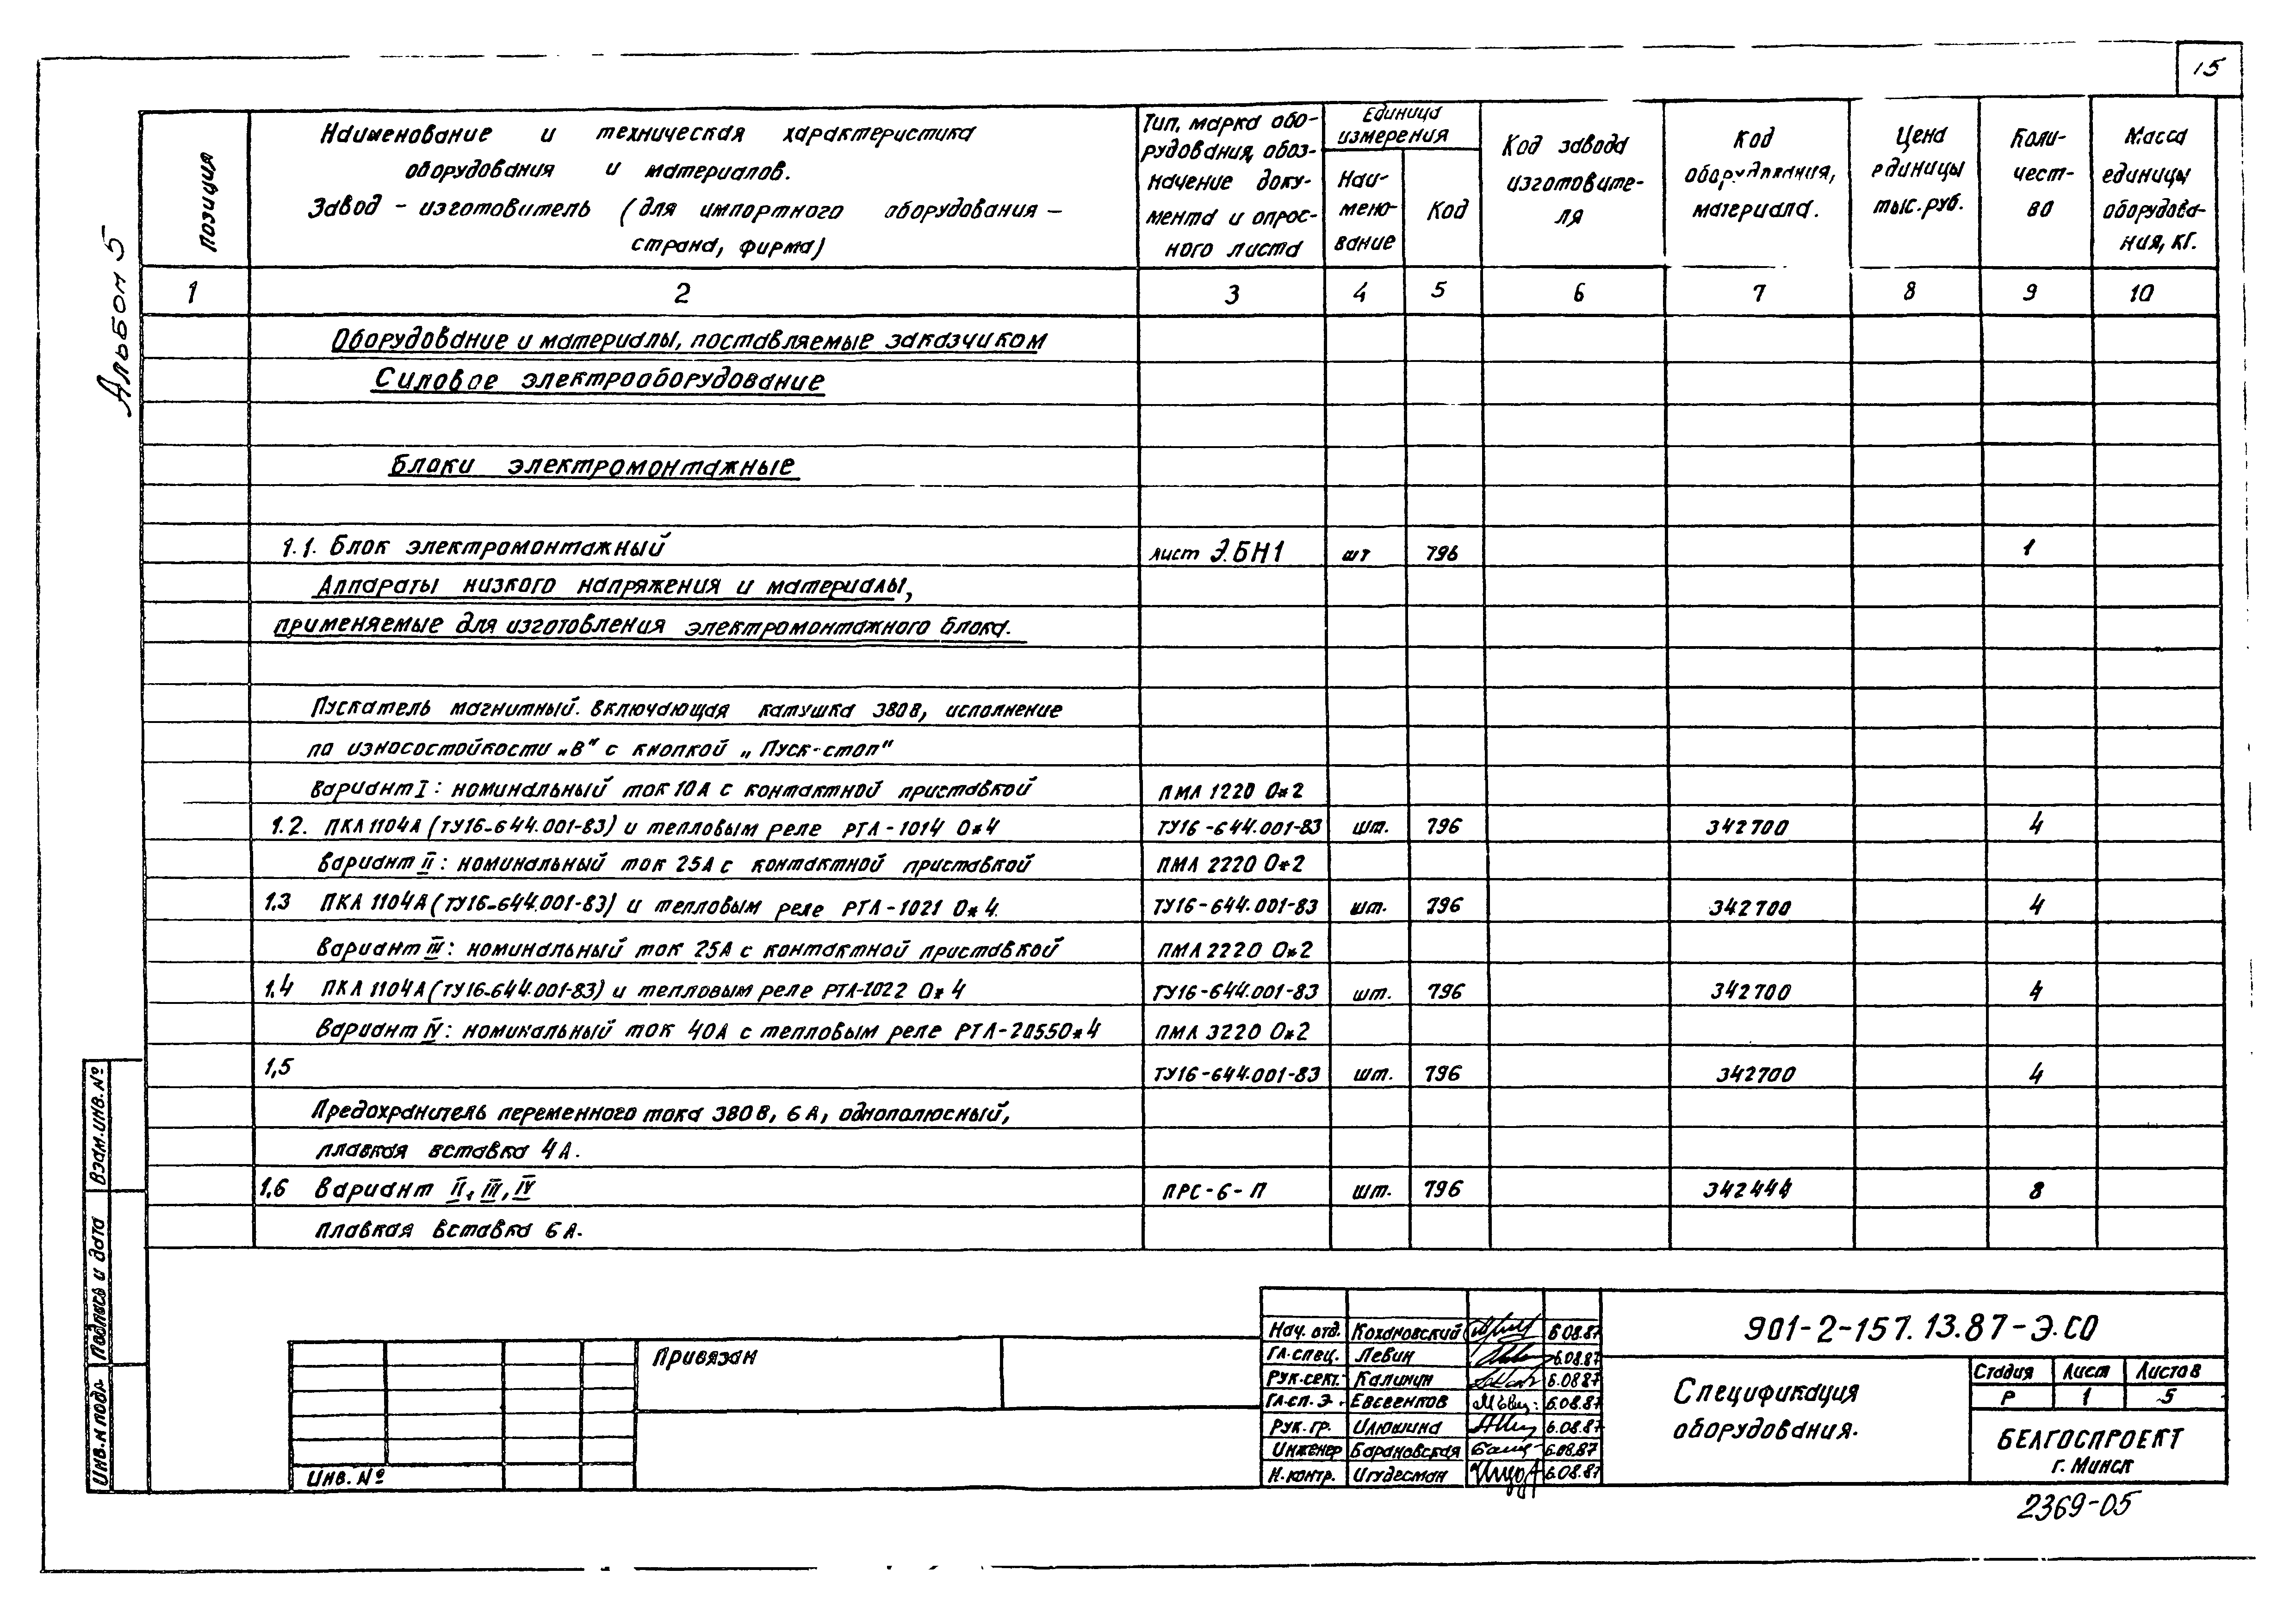 15
Альбом 5
Позиция
Наименование и техническая характеристика
оборудования и материалов.
Завод - изготовитель (для импортного оборудования -
страна, фирма)
Тип, марка обо-
рудования, обоз-
начение доку-
мента и опрос-
ного листа
Единица
измерения
Наи-
мено-
вание
Код
Код завода
изготовите-
ля
Код
оборудования,
материала.
Цена
единицы
тыс. руб.
Коли-
чест-
во
Масса
единицы
оборудова-
ния, кг.
1 2 3 4 5 6 7 8 9 10
Оборудование и материалы, поставляемые заказчиком
Силовое электрооборудование
Блоки электромонтажные
1.1. Блок электромонтажный лист Э.БН1 шт 796 1
Аппараты низкого напряжения и материалы,
применяемые для изготовления электромонтажного блока.
Пускатель магнитный. Включающая катушка 380В, исполнение
по износостойкости „В" с кнопкой „Пуск-стоп"
Вариант I: номинальный ток 10А с контактной приставкой ПМЛ 1220 О*2
1.2. ПКЛ 1104А (ТУ16-644.001-83) и тепловым реле РТЛ-1014 О*4 ТУ16-644.001-83 шт. 796 342700 4
Вариант II: номинальный ток 25А с контактной приставкой ПМЛ 2220 О*2
1,3 ПКЛ 1104А (ТУ16-644.001-83) и тепловым реле РТЛ-1021 О*4. ТУ16-644.001-83 шт. 796 342700 4
Вариант III: номинальный ток 25А с контактной приставкой ПМЛ 2220 О*2
1,4 ПКЛ 1104А (ТУ16-644.001-83) и тепловым реле РТЛ-1022 О*4 ТУ16-644.001-83 шт. 796 342700 4
Вариант IV: номинальный ток 40А с тепловым реле РТЛ-2055О*4 ПМЛ 3220 О*2
1,5 ТУ16-644.001-83 шт. 796 342700 4
Предохранитель переменного тока 380В, 6А, однополюсный,
плавкая вставка 4А.
1,6 Вариант II, III, IV ПРС-6-П шт. 796 342444 8
плавкая вставка 6А.
Взам.инв.№
Подпись и дата
Инв.№ подл.
Инв. №
Привязан
Нач. отд. Кохановский 6.08.87
Гл.спец. Левин 6.08.87
Рук.сект. Калинин 6.08.87
Гл.сп.э. Евсеенков 6.08.87
Рук. гр. Илюшина 6.08.87
Инженер Барановская 6.08.87
Н.контр. Игудесман 6.08.87
901-2-157.13.87-Э.СО
Спецификация
оборудования.
Стадия Лист Листов
Р 1 5
БЕЛГОСПРОЕКТ
г. Минск
2369-05